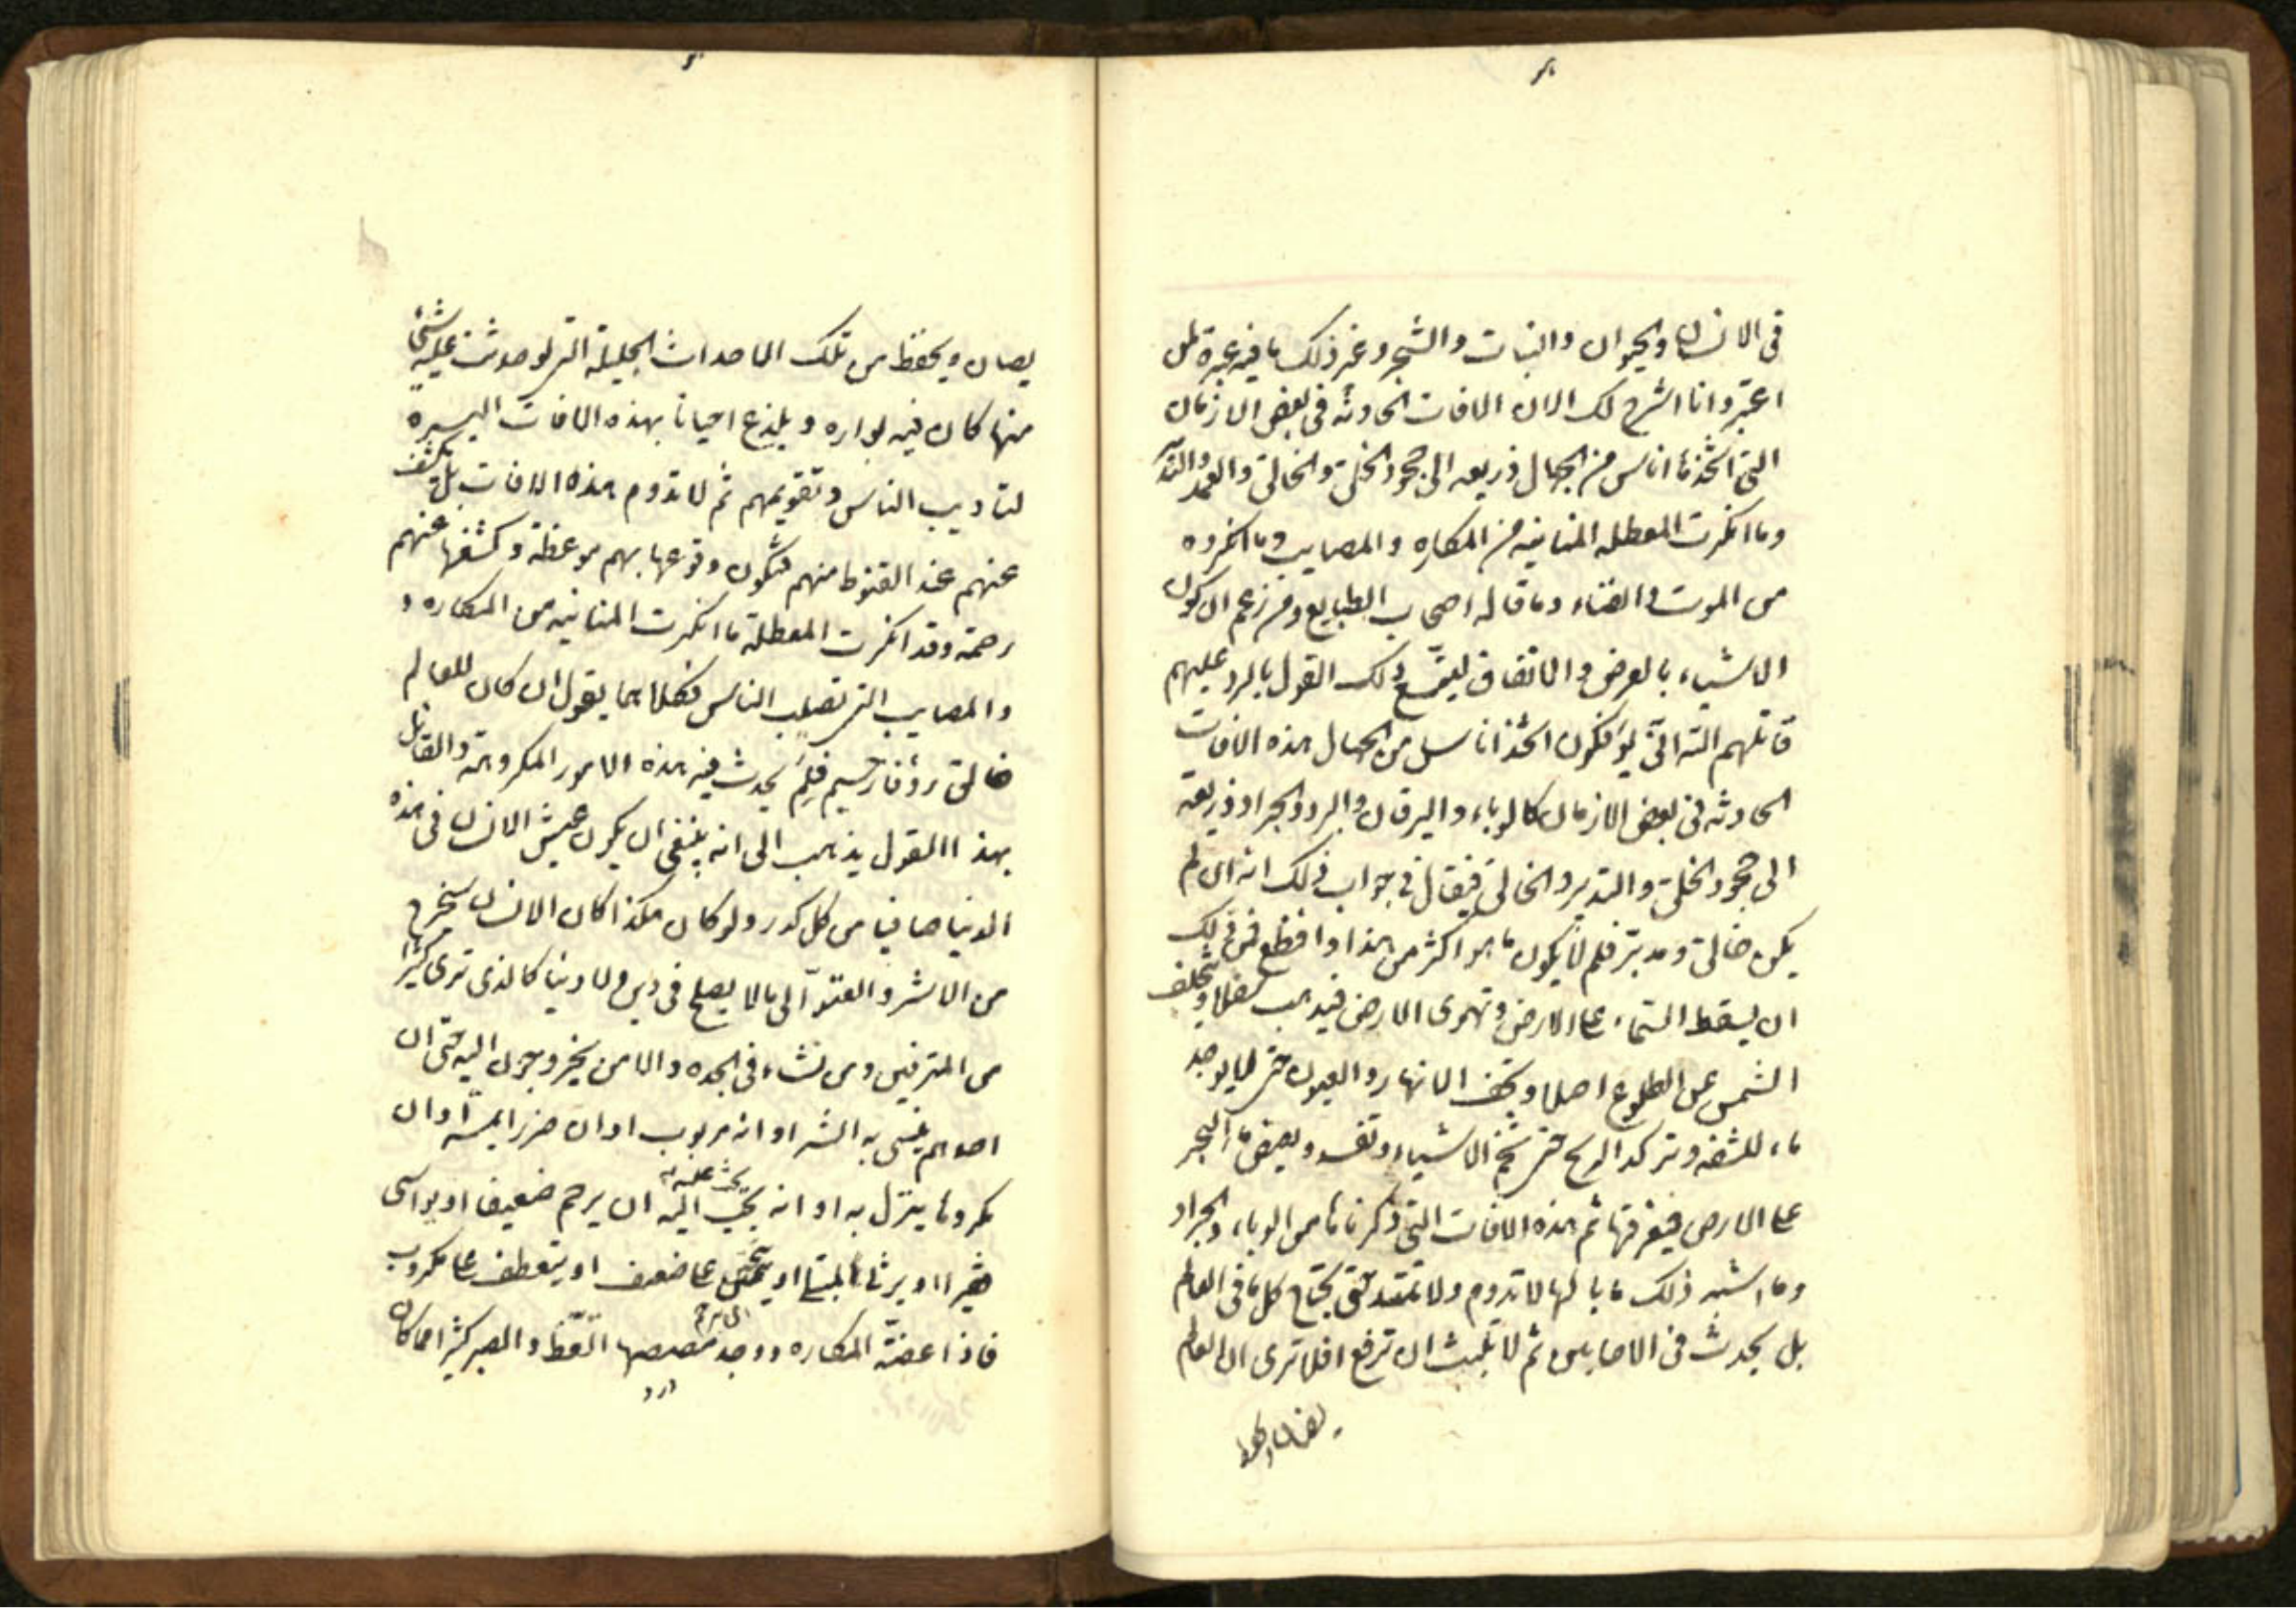 في الانسان والحيوان والنبات والشجر وغير ذلك ما فيه عبرة لمن
اعتبر وانا اشرح لك الان الافات الحادثه في بعض الازمان
التي اتخذها اناس من الجهال ذريعه الى جحود الخلق والخالق والعمد والتدبير
وما انكرت المعطله المنانيه من المكاره والمصايب وما انكروه
من الموت والفناء وما قاله اصحاب الطبايع ومن زعم ان كون
الاشياء بالعرض والاتفاق ليتسع ذلك القول بالرد عليهم
قاتلهم الله انى يؤفكون اتخذ اناس من الجهال هذه الافات
الحادثه في بعض الازمان كالوباء واليرقان والبرد والجراد ذريعه
الى جحود الخلق والتدبير والخالق فيقال في جواب ذلك انه ان لم
يكن خالق ومدبر فلم لا يكون ما هو اكثر من هذا وافظع فمن ذلك
ان يسقط السماء على الارض وتهوى الارض فيذهب سفلا ويتخلف
الشمس عن الطلوع اصلا وتجف الانهار والعيون حتى لا يوجد
ماء للشفه وتركد الريح حتى تخم الاشياء وتفسد ويفيض ماء البحر
على الارض فيغرقها ثم هذه الافات التي ذكرناها من الوباء والجراد
وما اشبه ذلك ما بالها لا تدوم ولا تمتد حتى يجتاح كل ما في العالم
بل يحدث في الاحايين ثم لا تلبث ان ترفع افلا ترى ان العالم
يصان ويحفظ
يصان ويحفظ من تلك الاحداث الجليلة التي لو حدثت عليه شئ
منها كان فيه بواره ويلذع احيانا بهذه الافات اليسيرة
لتاديب الناس وتقويمهم ثم لا تدوم هذه الافات بل تكشف
عنهم عند القنوط منهم فتكون وقوعها بهم موعظة وكشفها عنهم
رحمة وقد انكرت المعطلة ما انكرت المنانيه من المكاره و
والمصايب التي تصيب الناس فكلاهما يقول ان كان للعالم
خالق رؤفا رحيم فلم يحدث فيه هذه الامور المكروهة والقائل
بهذا القول يذهب الى انه ينبغي ان يكون عيش الانسان في هذه
الدنيا صافيا من كل كدر ولو كان هكذا كان الانسان سيخرج
من الاشر والعتو الى ما لا يصلح في دين ولا دنيا كالذي ترى كثيرا
من المترفين ومن نشاء في الجده والامن يخرجون اليه حتى ان
احدهم ينسى به البشر او انه مربوب او ان ضررا يمسه او ان
مكروها ينزل به او انه يجب اليه ان يرحم ضعيفا او يواسي
يجب عليه
فقيرا او يرثا لمبتلى او يتحنن على ضعيف او يتعطف على مكروب
فاذا عضته المكاره ووجد مضضها اتعظ وابصر كثيرا مما كان